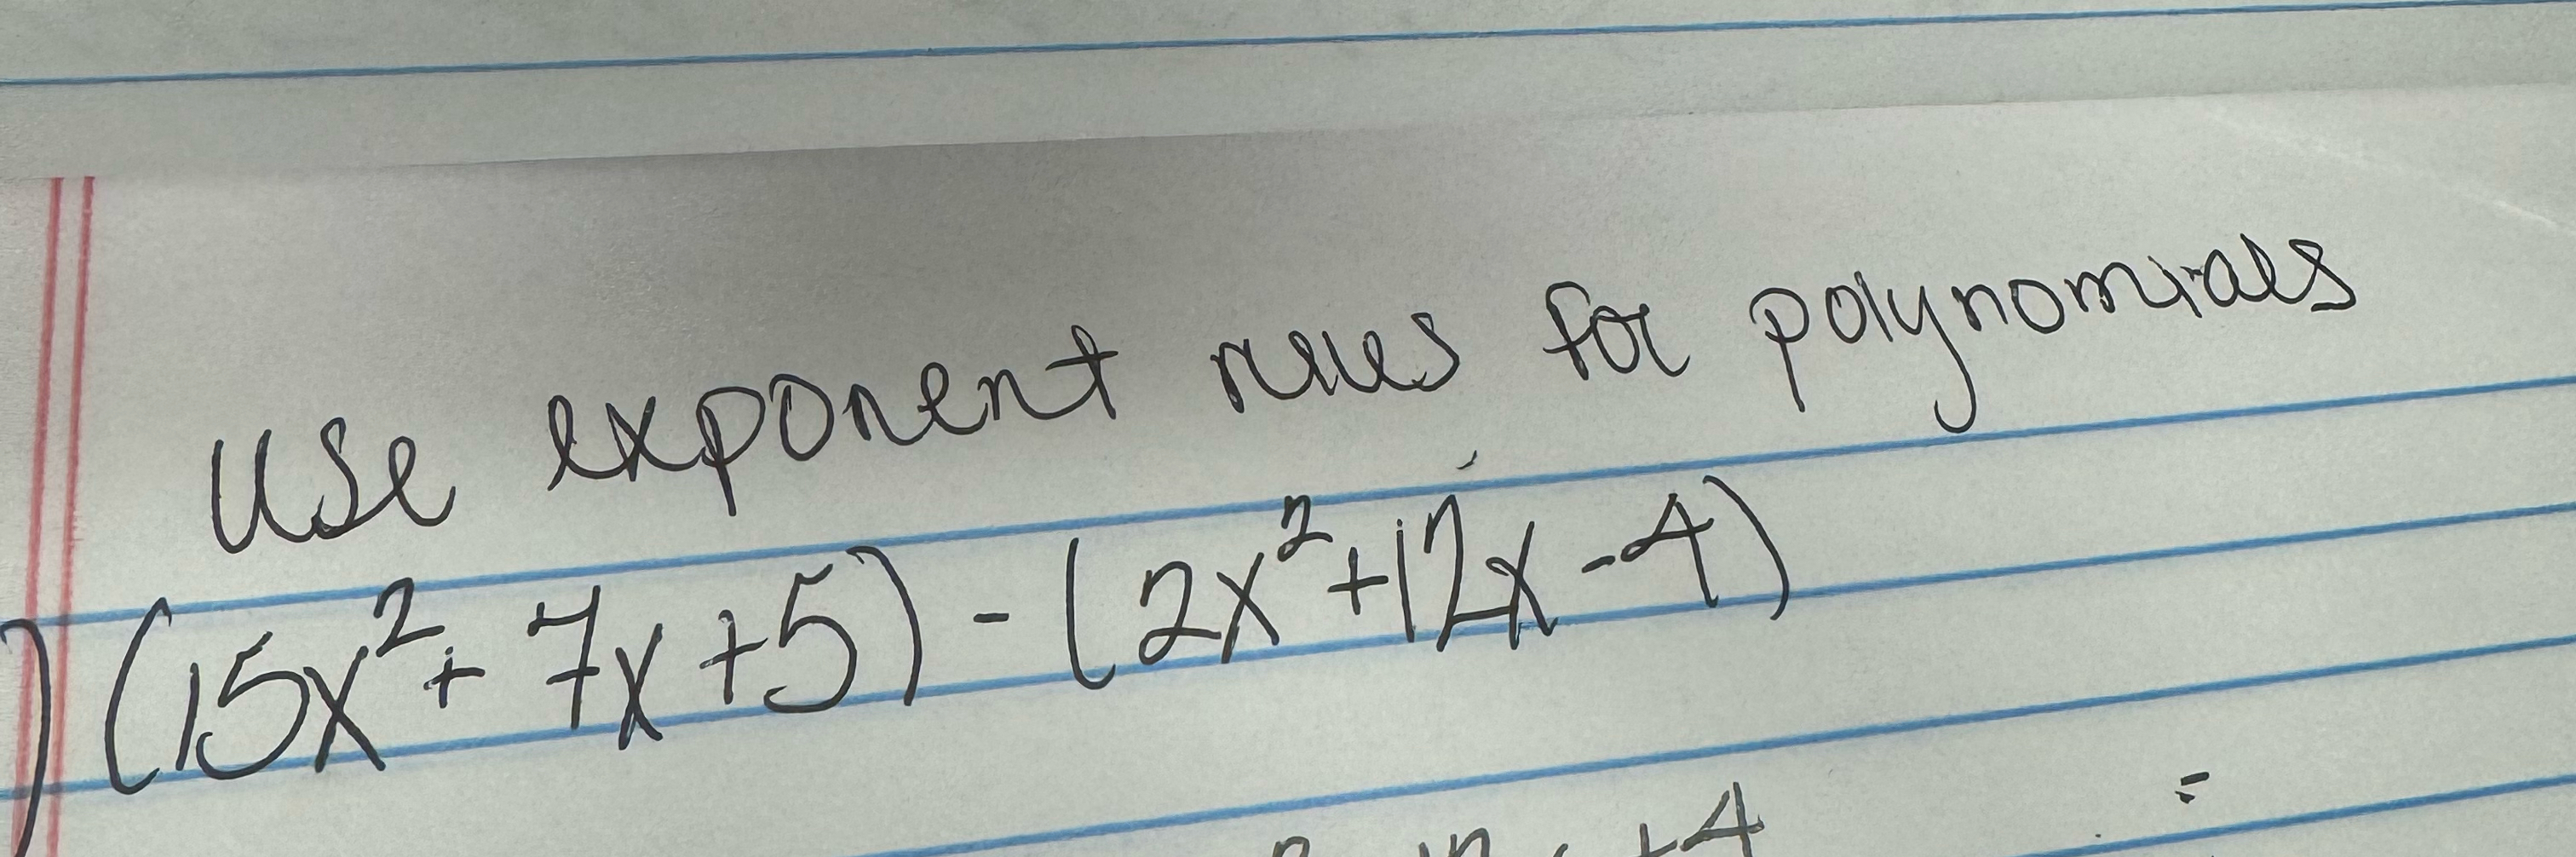 Use exponent rules for polynomials
) (15x²+ 7x +5) - (2x²+12x -4)
+4